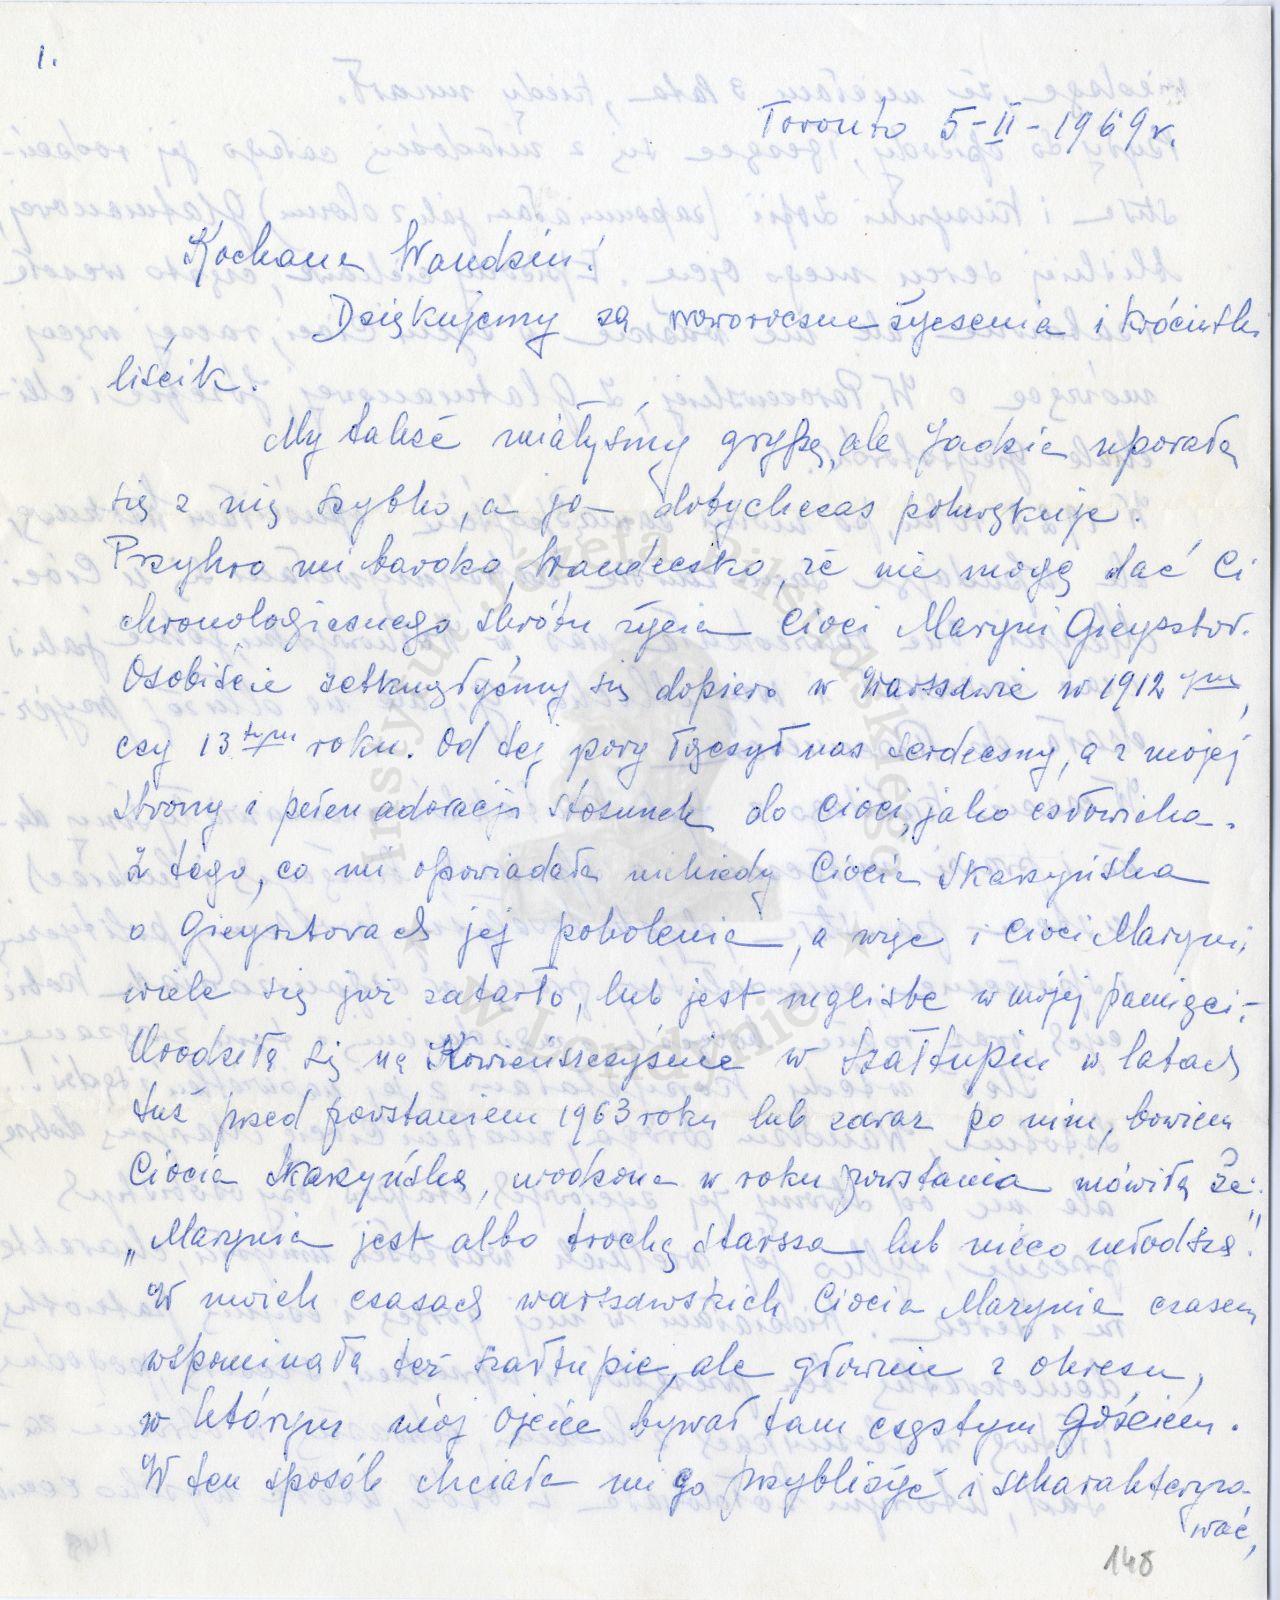 1.
Toronto 5-II-1969 r.
Kochana Wandziu!
Dziękujemy za noworoczne życzenia i króciutki
liścik.
My także miałyśmy grypę, ale Jadzia uporała
się z nią szybko, a ja dotychczas pokaszkuję.
Przykro mi bardzo, Wandeczko, że nie mogę dać Ci
chronologicznego skrótu życia Cioci Maryni Gieysztor.
Osobiście zetknęłyśmy się dopiero w Warszawie w 1912-ym,
czy 13tym roku. Od tej pory łączył nas serdeczny, a z mojej
strony i pełen adoracji stosunek do Cioci, jako człowieka.
Z tego, co mi opowiadała niekiedy Ciocia Skarzyńska
o Gieysztorach jej pokolenia, a więc i Cioci Maryni,
wiele się już zatarło, lub jest mgliste w mojej pamięci.
Urodziła się na Kowieńszczyźnie w Szałtupiu w latach
tuż przed powstaniem 1963 roku lub zaraz po nim, bowiem
Ciocia Skarzyńska, urodzona w roku powstania mówiła że:
„Marynia jest albo trochę starsza lub nieco młodsza".
W moich czasach warszawskich Ciocia Marynia czasem
wspominała też Szałtupie, ale głównie z okresu,
w którym mój Ojciec bywał tam częstym gościem.
W ten sposób chciała mi go przybliżyć i scharakteryzo-
wać,
148
Instytut Józefa Piłsudskiego
w Londynie